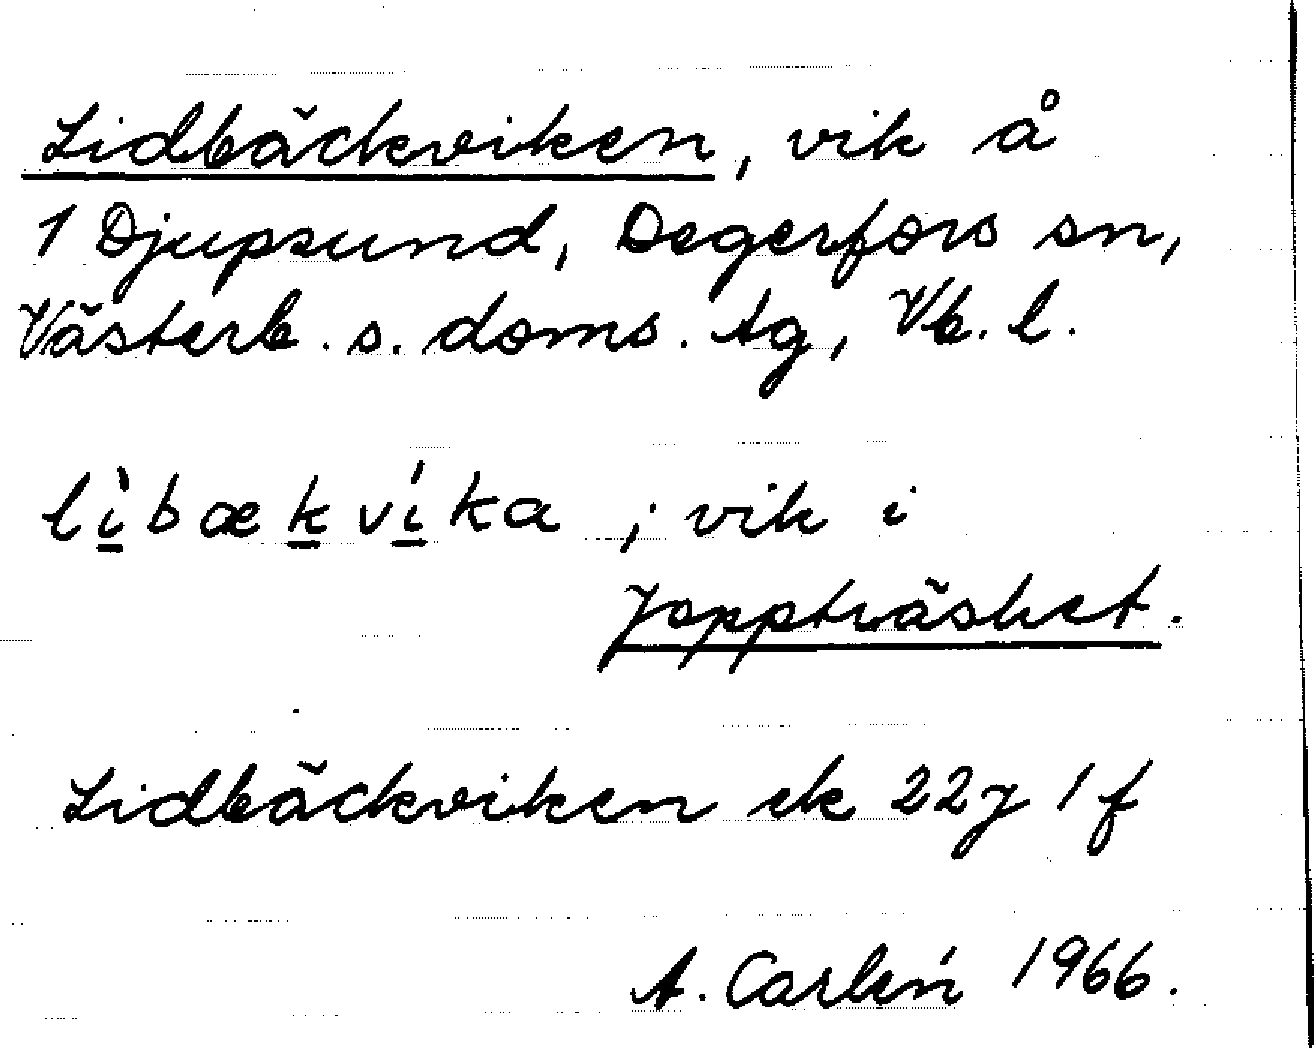 Lidbäckviken, vik å
1 Djupsund, Degerfors sn,
Västerb. s. doms. tg, Vb. l.
lìbækvíka ; vik i
Joppträsket.
Lidbäckviken ek 22J 1f
A. Carlén 1966.